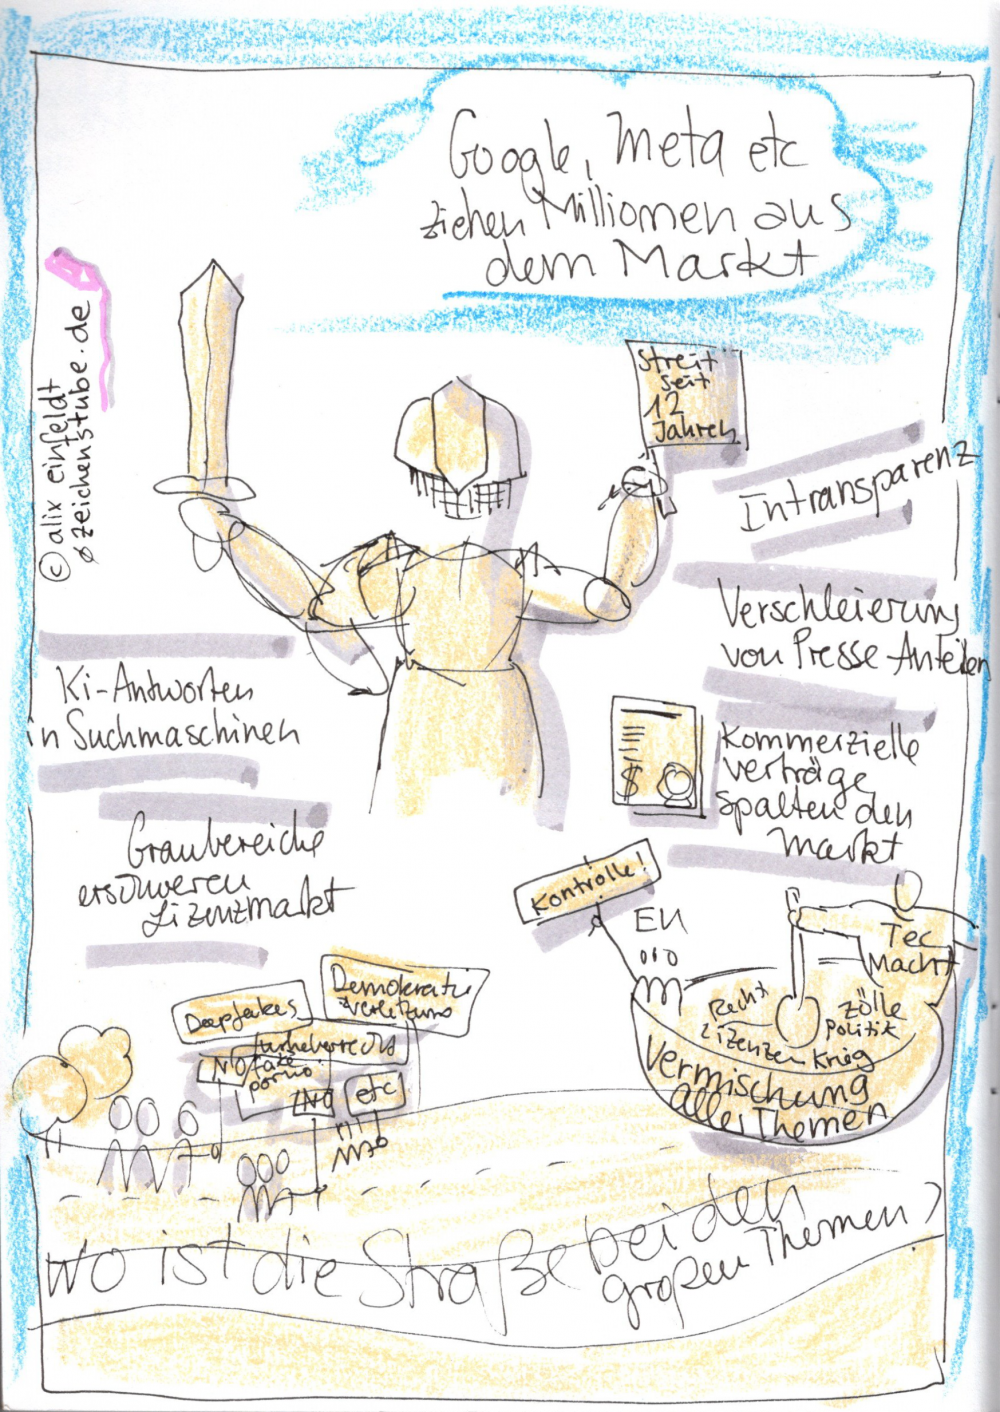 Google, Meta etc
ziehen Milliomen aus
dem Markt
© alix einfeldt
zeichenstube.de
Streit
seit
12
Jahren
Intransparenz
Verschleierung
von Presse-Anteilen
Ki-Antworten
in Suchmaschinen
$
Kommerzielle
Verträge
spalten den
Markt
Graubereiche
erschweren
Lizenzmarkt
Kontrolle!
EU
Tec
Macht
Recht
Lizenzen
Zölle
Politik
Krieg
Vermischung
aller Themen
Deepfakes
Demokratie
Urheberrecht
NO
fake
porno
NO
etc
Wo ist die Straße bei den
großen Themen?